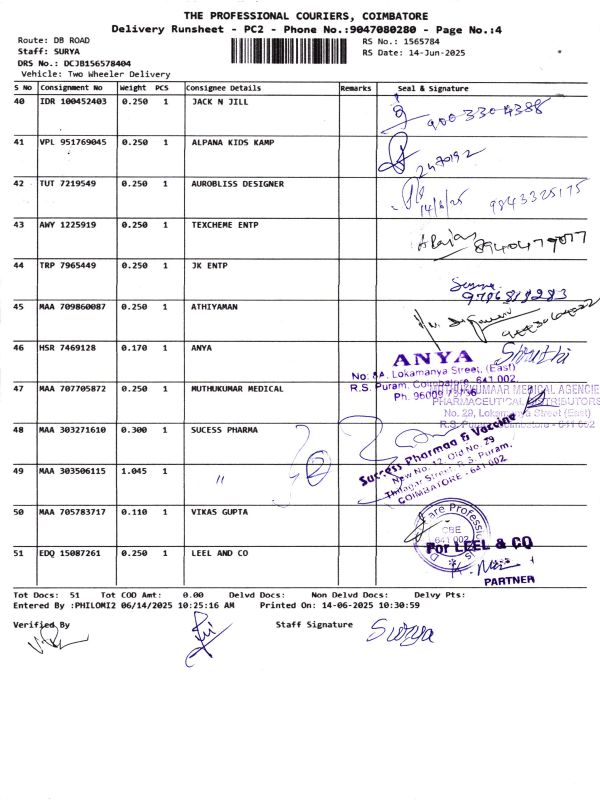 THE PROFESSIONAL COURIERS, COIMBATORE
Delivery Runsheet - PC2 - Phone No.:9047080280 - Page No.:4
Route: DB ROAD
RS No.: 1565784
Staff: SURYA
RS Date: 14-Jun-2025
DRS No.: DCJB156578404
Vehicle: Two Wheeler Delivery
S No Consignment No Weight PCS Consignee Details Remarks Seal & Signature
40 IDR 100452403 0.250 1 JACK N JILL
900 330 4388
41 VPL 951769045 0.250 1 ALPANA KIDS KAMP
2470192
42 TUT 7219549 0.250 1 AUROBLISS DESIGNER
14/6/25 9843325175
43 AWY 1225919 0.250 1 TEXCHEME ENTP
8940479077
44 TRP 7965449 0.250 1 JK ENTP
9786818283
45 MAA 709860087 0.250 1 ATHIYAMAN
46 HSR 7469128 0.170 1 ANYA
ANYA
No: 8A, Lokamanya Street, (East)
R.S. Puram, Coimbatore - 641 002.
Ph. 96009 73756
47 MAA 707705872 0.250 1 MUTHUKUMAR MEDICAL
MUTHUKUMAAR MEDICAL AGENCIE
PHARMACEUTICAL DISTRIBUTORS
No. 29, Lokamanya Street (East)
R.S. Puram, Coimbatore - 641 002
48 MAA 303271610 0.300 1 SUCESS PHARMA
Success Pharmaa & Vaccine
New No. 12, Old No. 29
Thilagar Street, R.S. Puram,
COIMBATORE - 641 002
49 MAA 303506115 1.045 1 "
50 MAA 705783717 0.110 1 VIKAS GUPTA
CBE
641 002
51 EDQ 15087261 0.250 1 LEEL AND CO
For LEEL & CO
PARTNER
Tot Docs: 51 Tot COD Amt: 0.00 Delvd Docs: Non Delvd Docs: Delvy Pts:
Entered By :PHILOMI2 06/14/2025 10:25:16 AM Printed On: 14-06-2025 10:30:59
Verified By
Staff Signature Surya